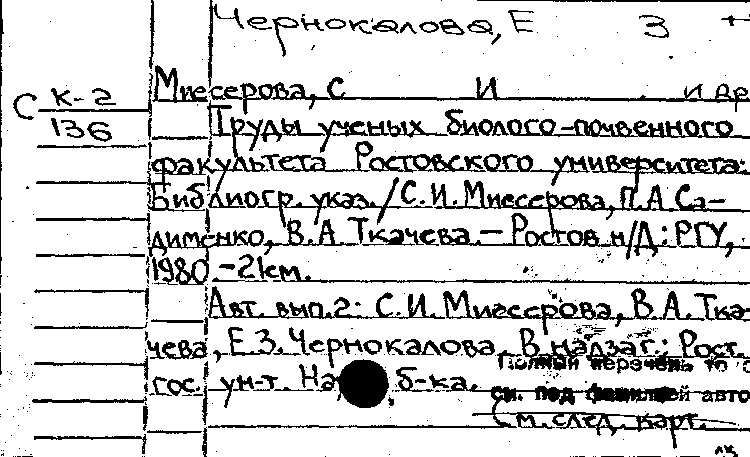 Чернокалова, Е З
Миесерова, С И и др
С К-2
136
Труды ученых биолого-почвенного
факультета Ростовского университета:
Библиогр. указ. / С.И. Миесерова, П.А. Са-
дименко, В.А. Ткачева. – Ростов н/Д: РГУ,
1980 – 2 км.
Авт. вып. 2: С.И. Миесерова, В.А. Тка-
чева, Е.З. Чернокалова. В надзаг.: Рост.
гос. ун-т. б-ка.
Полный перечень
см. под фамилией авто
См. след. карт.